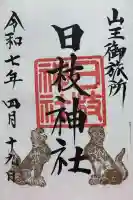 山王御旅所
日枝神社
令和七年四月十九日